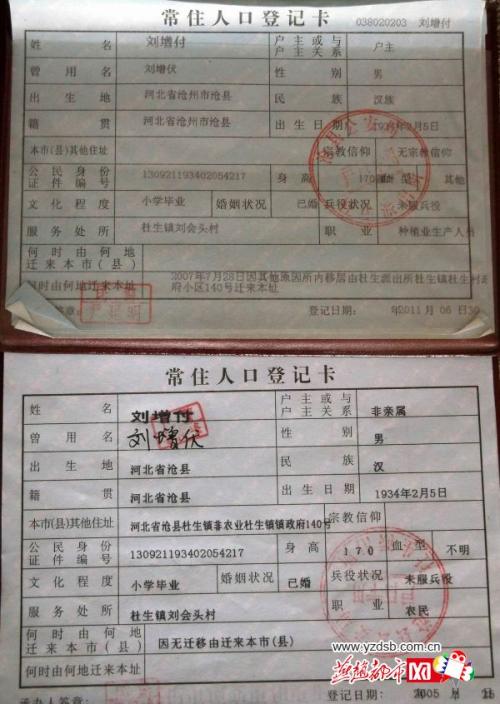 常住人口登记卡
038020203 刘增付
姓名 刘增付 户主或与户主关系 户主
曾用名 刘增伏 性别 男
出生地 河北省沧州市沧县 民族 汉族
籍贯 河北省沧州市沧县 出生日期 1934年2月5日
本市(县)其他住址 宗教信仰 无宗教信仰
公民身份证件编号 130921193402054217 身高 170 血型 其他
文化程度 小学毕业 婚姻状况 已婚 兵役状况 未服兵役
服务处所 杜生镇刘会头村 职业 种植业生产人员
何时由何地迁来本市(县)
何时由何地迁来本址 2007年7月28日因其他原因所内移居由杜生派出所杜生镇杜生村政府小区140号迁来本址
登记日期: 年2011月06日30
常住人口登记卡
姓名 刘增付 户主或与户主关系 非亲属
曾用名 刘增伏 性别 男
出生地 河北省沧县 民族 汉
籍贯 河北省沧县 出生日期 1934年2月5日
本市(县)其他住址 河北省沧县杜生镇非农业杜生镇镇政府140号 宗教信仰
公民身份证件编号 130921193402054217 身高 170 血型 不明
文化程度 小学毕业 婚姻状况 已婚 兵役状况 未服兵役
服务处所 杜生镇刘会头村 职业 农民
何时由何地迁来本市(县) 因无迁移由迁来本市(县)
何时由何地迁来本址
承办人签章: 登记日期: 2005 年 月 日
www.yzdsb.com.cn
燕赵都市网